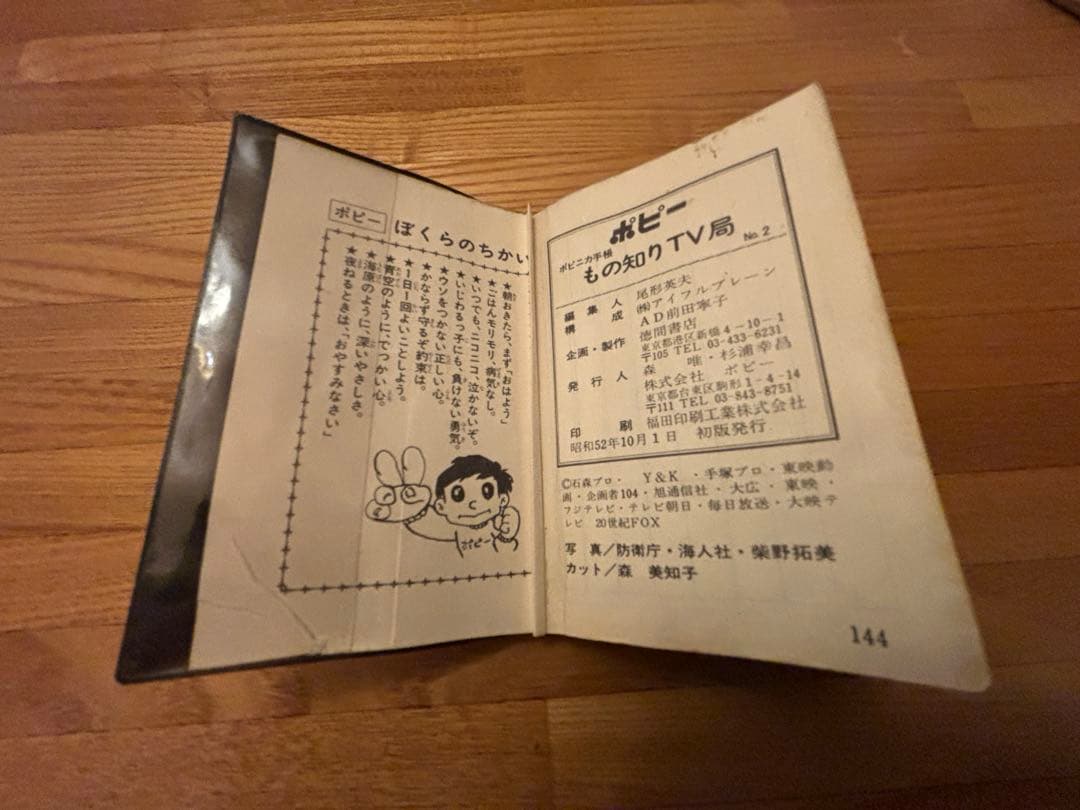 ポピー
ぼくらのちかい
★朝おきたら、まず「おはよう」
★ごはんモリモリ、病気なし。
★いつでも、ニコニコ、泣かないぞ。
★いじわるっ子にも、負けない勇気。
★ウソをつかない正しい心。
★かならず守るぞ約束は。
★1日1回よいことしよう。
★青空のように、でっかい心。
★海原のように、深いやさしさ。
★夜ねるときは、「おやすみなさい」
ポピー
ポピー
ポピニカ手帳
もの知りTV局 No.2
編集人 尾形英夫
構成 ㈱アイフルブレーン
AD前田寧子
企画・製作 徳間書店
東京都港区新橋4-10-1
〒105 TEL 03-433-6231
発行人 森 唯・杉浦幸昌
株式会社 ポピー
東京都台東区駒形1-4-14
〒111 TEL 03-843-8751
印刷 福田印刷工業株式会社
昭和52年10月1日 初版発行
©石森プロ・ Y&K ・手塚プロ・東映動
画・企画者104・旭通信社・大広・東映・
フジテレビ・テレビ朝日・毎日放送・大映テ
レビ 20世紀FOX
写真/防衛庁・海人社・柴野拓美
カット/森 美知子
144